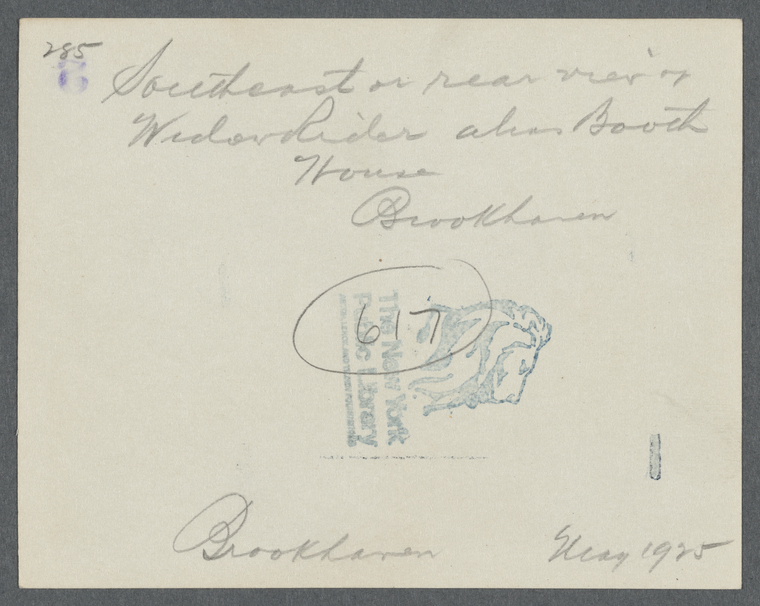 285
Southeast or rear view of
Widow Rider alias Booth
House
Brookhaven
617
The New York
Public Library
Brookhaven May 1925